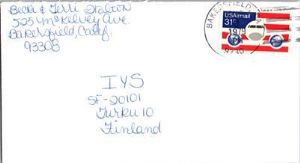 Beck & Terri Stalton
525 McKelvey Ave.
Bakersfield, Calif.
93308
USAirmail
31c
BAKERSFIELD
1979
IYS
SF-20101
Turku 10
Finland